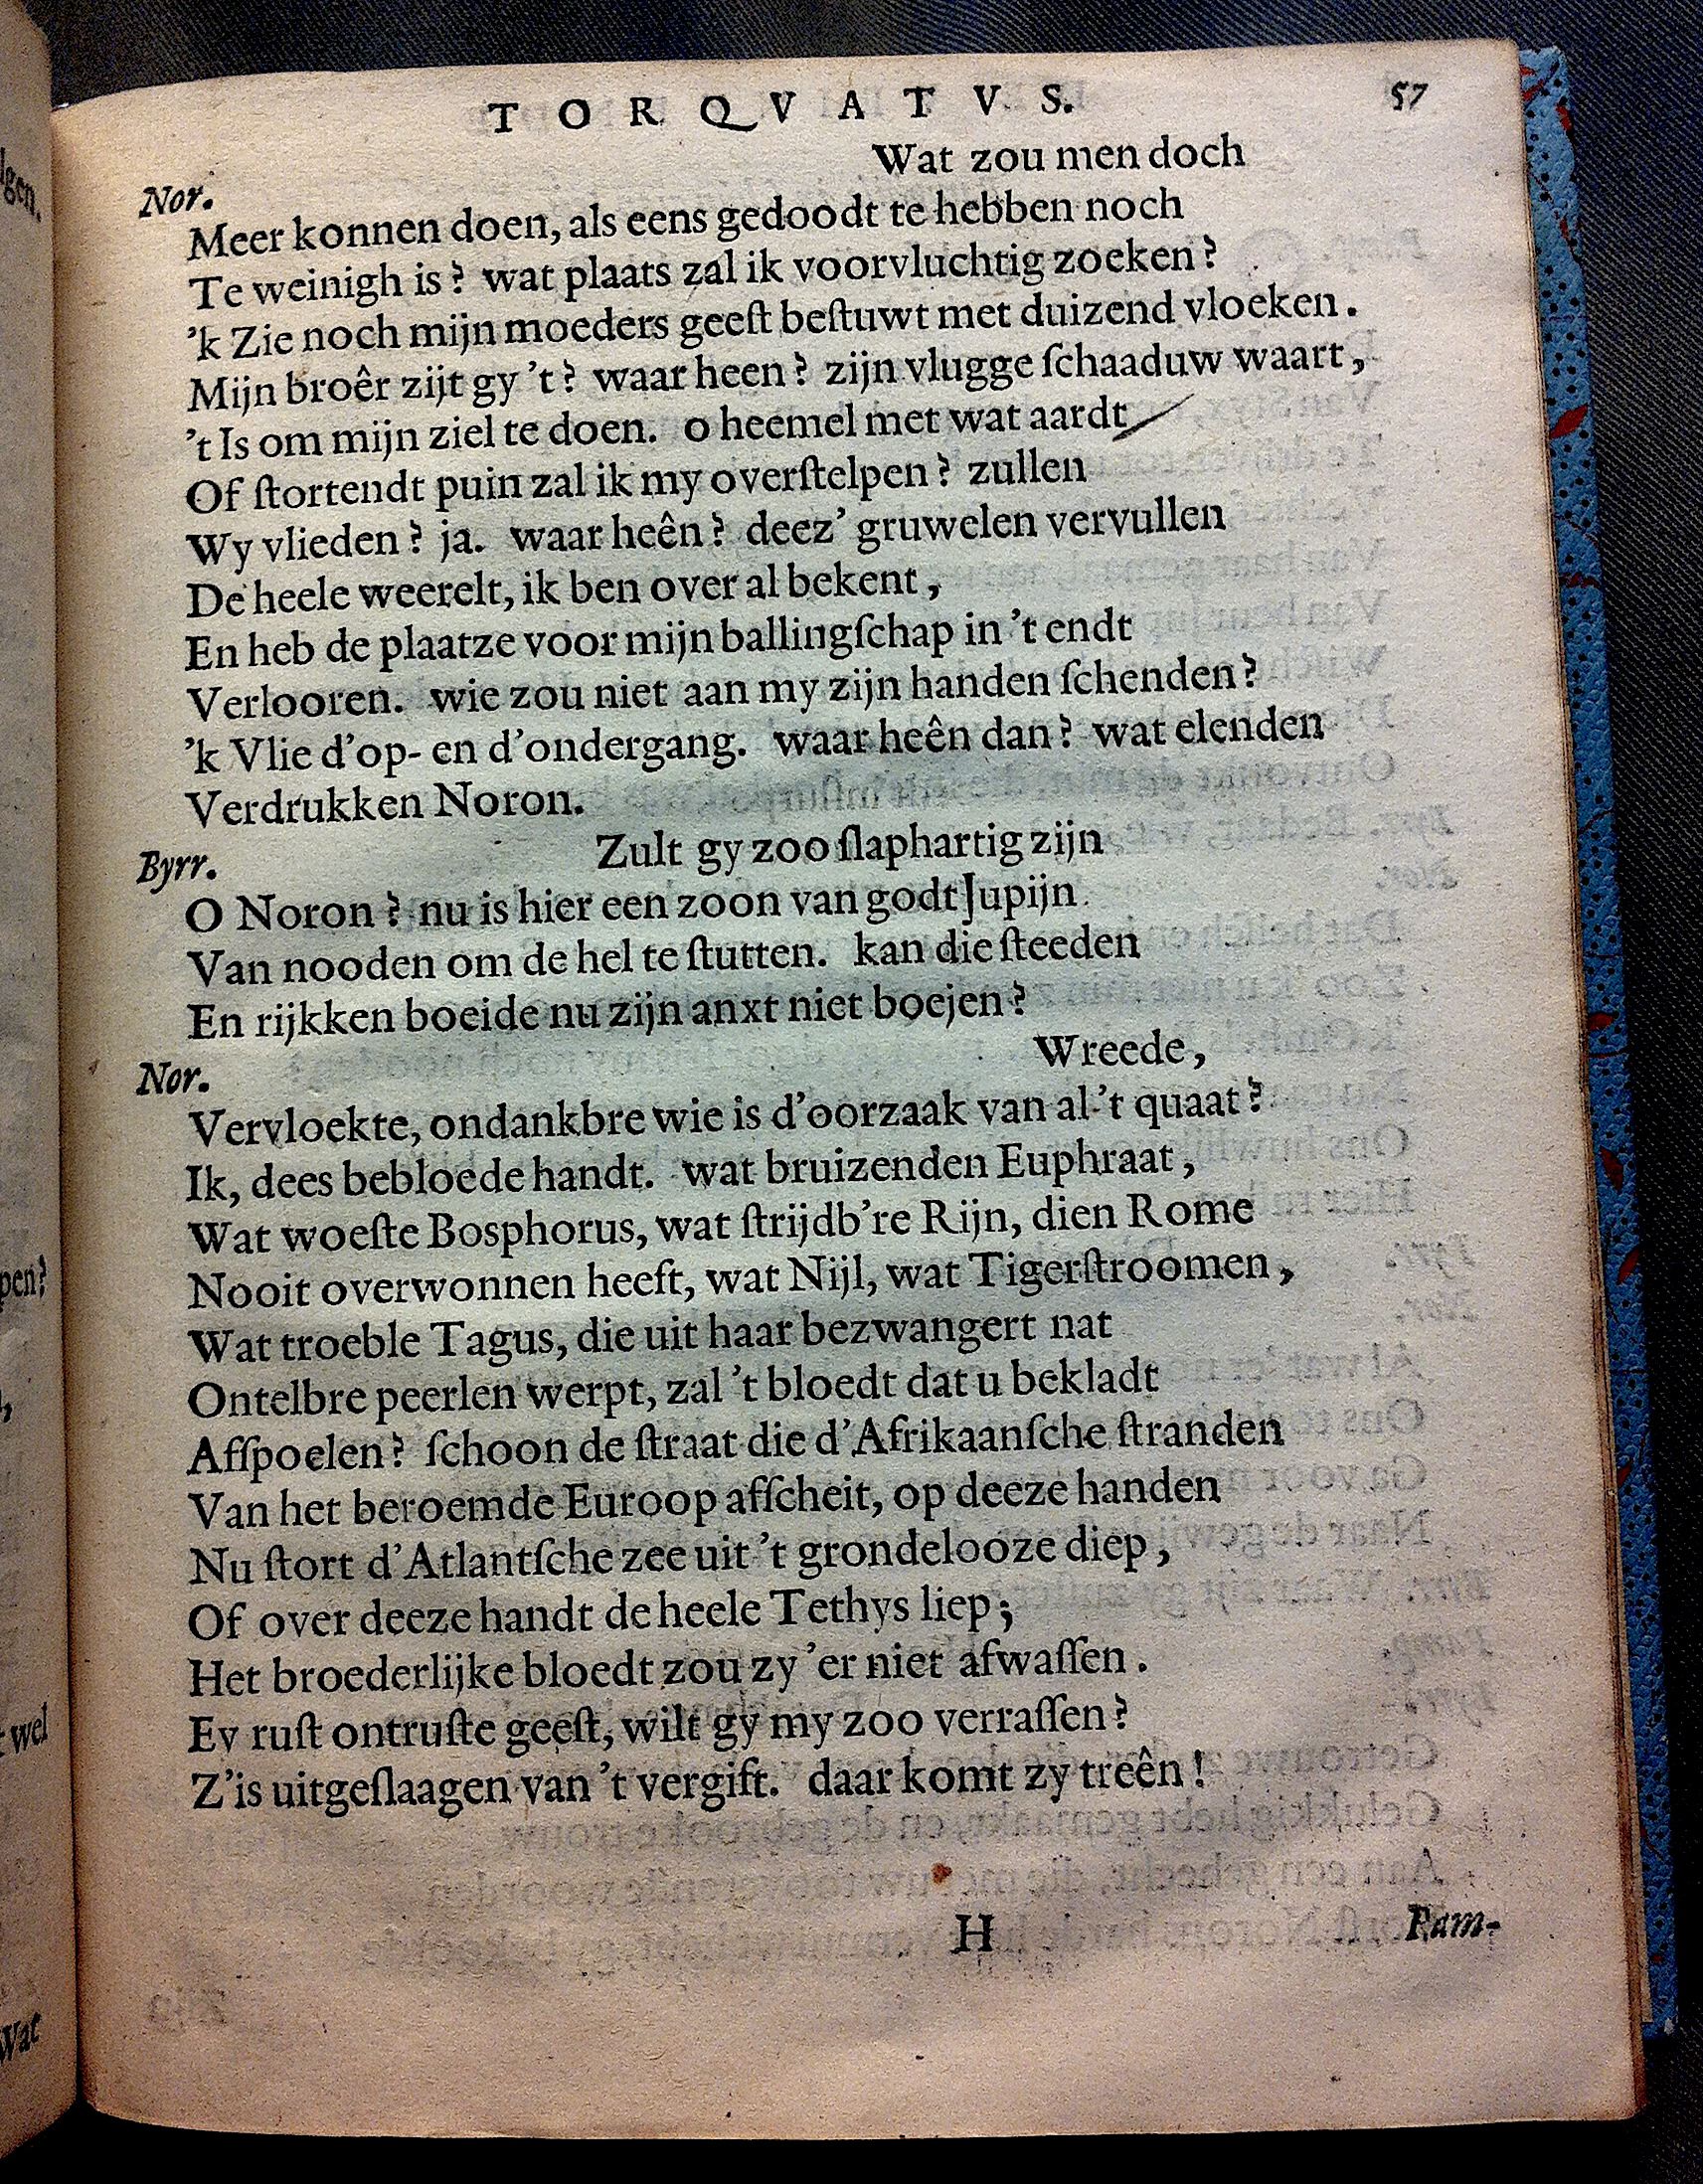 TORQVATVS. 57
Wat zou men doch
Nor.
Meer konnen doen, als eens gedoodt te hebben noch
Te weinigh is? wat plaats zal ik voorvluchtig zoeken?
'k Zie noch mijn moeders geeſt beſtuwt met duizend vloeken.
Mijn broêr zijt gy 't? waar heen? zijn vlugge ſchaaduw waart,
't Is om mijn ziel te doen. o heemel met wat aardt
Of ſtortendt puin zal ik my overſtelpen? zullen
Wy vlieden? ja. waar heên? deez' gruwelen vervullen
De heele weerelt, ik ben over al bekent,
En heb de plaatze voor mijn ballingſchap in 't endt
Verlooren. wie zou niet aan my zijn handen ſchenden?
'k Vlie d'op- en d'ondergang. waar heên dan? wat elenden
Verdrukken Noron.
Zult gy zoo ſlaphartig zijn
Byrr.
O Noron? nu is hier een zoon van godt Jupijn
Van nooden om de hel te ſtutten. kan die ſteeden
En rijkken boeide nu zijn anxt niet boejen?
Wreede,
Nor.
Vervloekte, ondankbre wie is d'oorzaak van al 't quaat?
Ik, dees bebloede handt. wat bruizenden Euphraat,
Wat woeſte Bosphorus, wat ſtrijdb're Rijn, dien Rome
Nooit overwonnen heeft, wat Nijl, wat Tigerſtroomen,
Wat troeble Tagus, die uit haar bezwangert nat
Ontelbre peerlen werpt, zal 't bloedt dat u bekladt
Afſpoelen? ſchoon de ſtraat die d'Afrikaanſche ſtranden
Van het beroemde Euroop afſcheit, op deeze handen
Nu ſtort d'Atlantſche zee uit 't grondelooze diep,
Of over deeze handt de heele Tethys liep;
Het broederlijke bloedt zou zy 'er niet afwaſſen.
Ey ruſt ontruſte geeſt, wilt gy my zoo verraſſen?
Z'is uitgeſlaagen van 't vergift. daar komt zy treên!
H Pam-